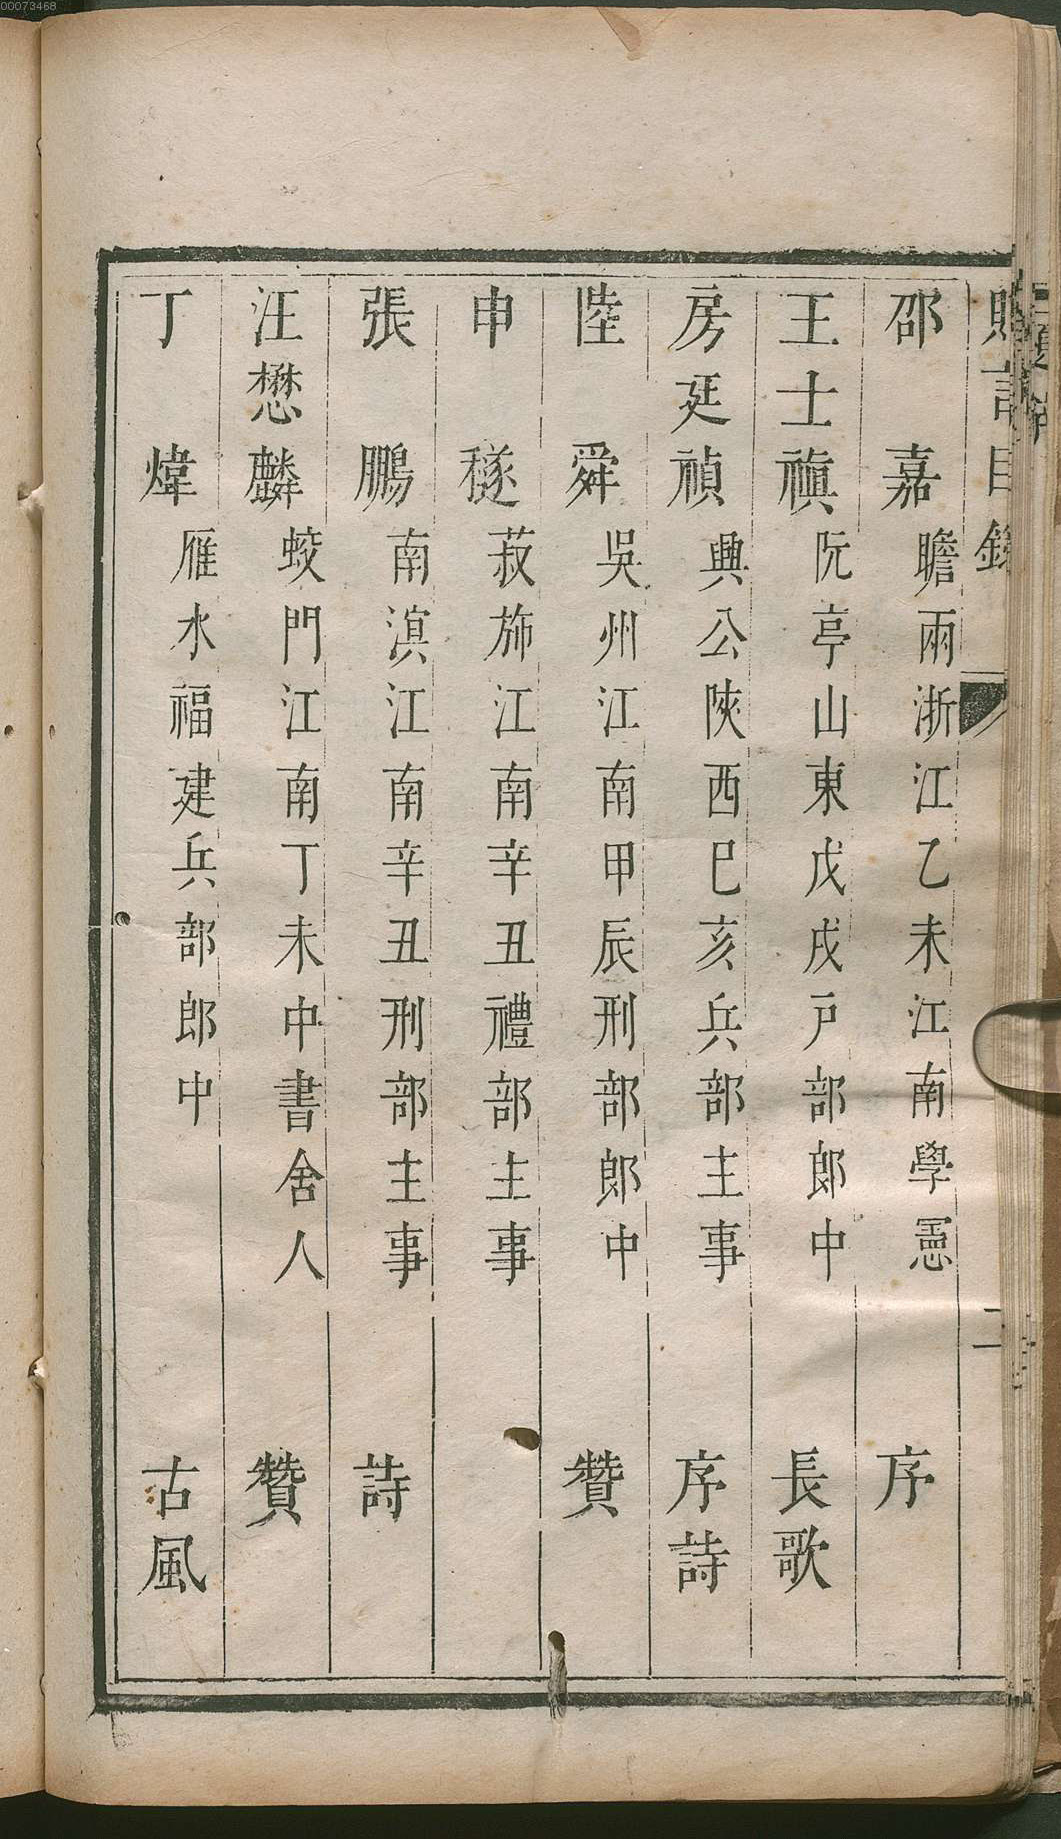 00073468
目錄
二
邵嘉 瞻雨浙江乙未江南學憲 序
王士禛 阮亭山東戊戌戸部郎中 長歌
房廷禎 興公陝西巳亥兵部主事 序詩
陸舜 吳州江南甲辰刑部郎中 贊
申穟 菽斾江南辛丑禮部主事
張鵬 南溟江南辛丑刑部主事 詩
汪懋麟 蛟門江南丁未中書舍人 贊
丁煒 雁水福建兵部郎中 古風